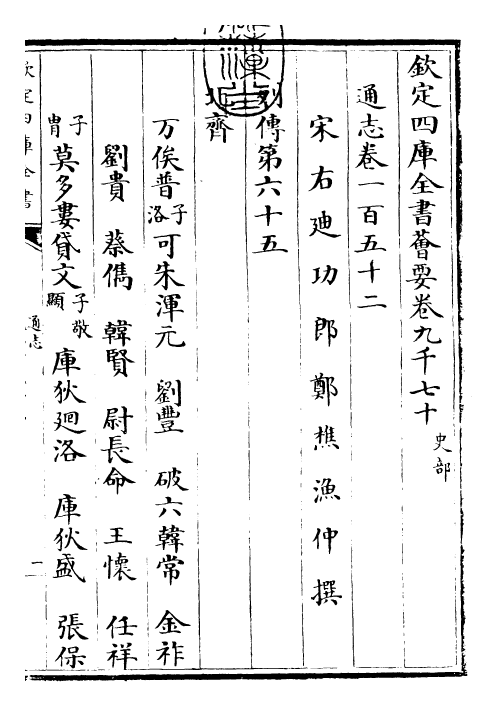 欽定四庫全書薈要卷九千七十 史部
通志卷一百五十二
宋右迪功郎鄭樵漁仲撰
列傳第六十五
北齊
万俟普子洛 可朱渾元 劉豐 破六韓常 金祚
劉貴 蔡儁 韓賢 尉長命 王懷 任祥
子胄 莫多婁貸文子敬顯 庫狄廻洛 庫狄盛 張保
欽定四庫全書
通志